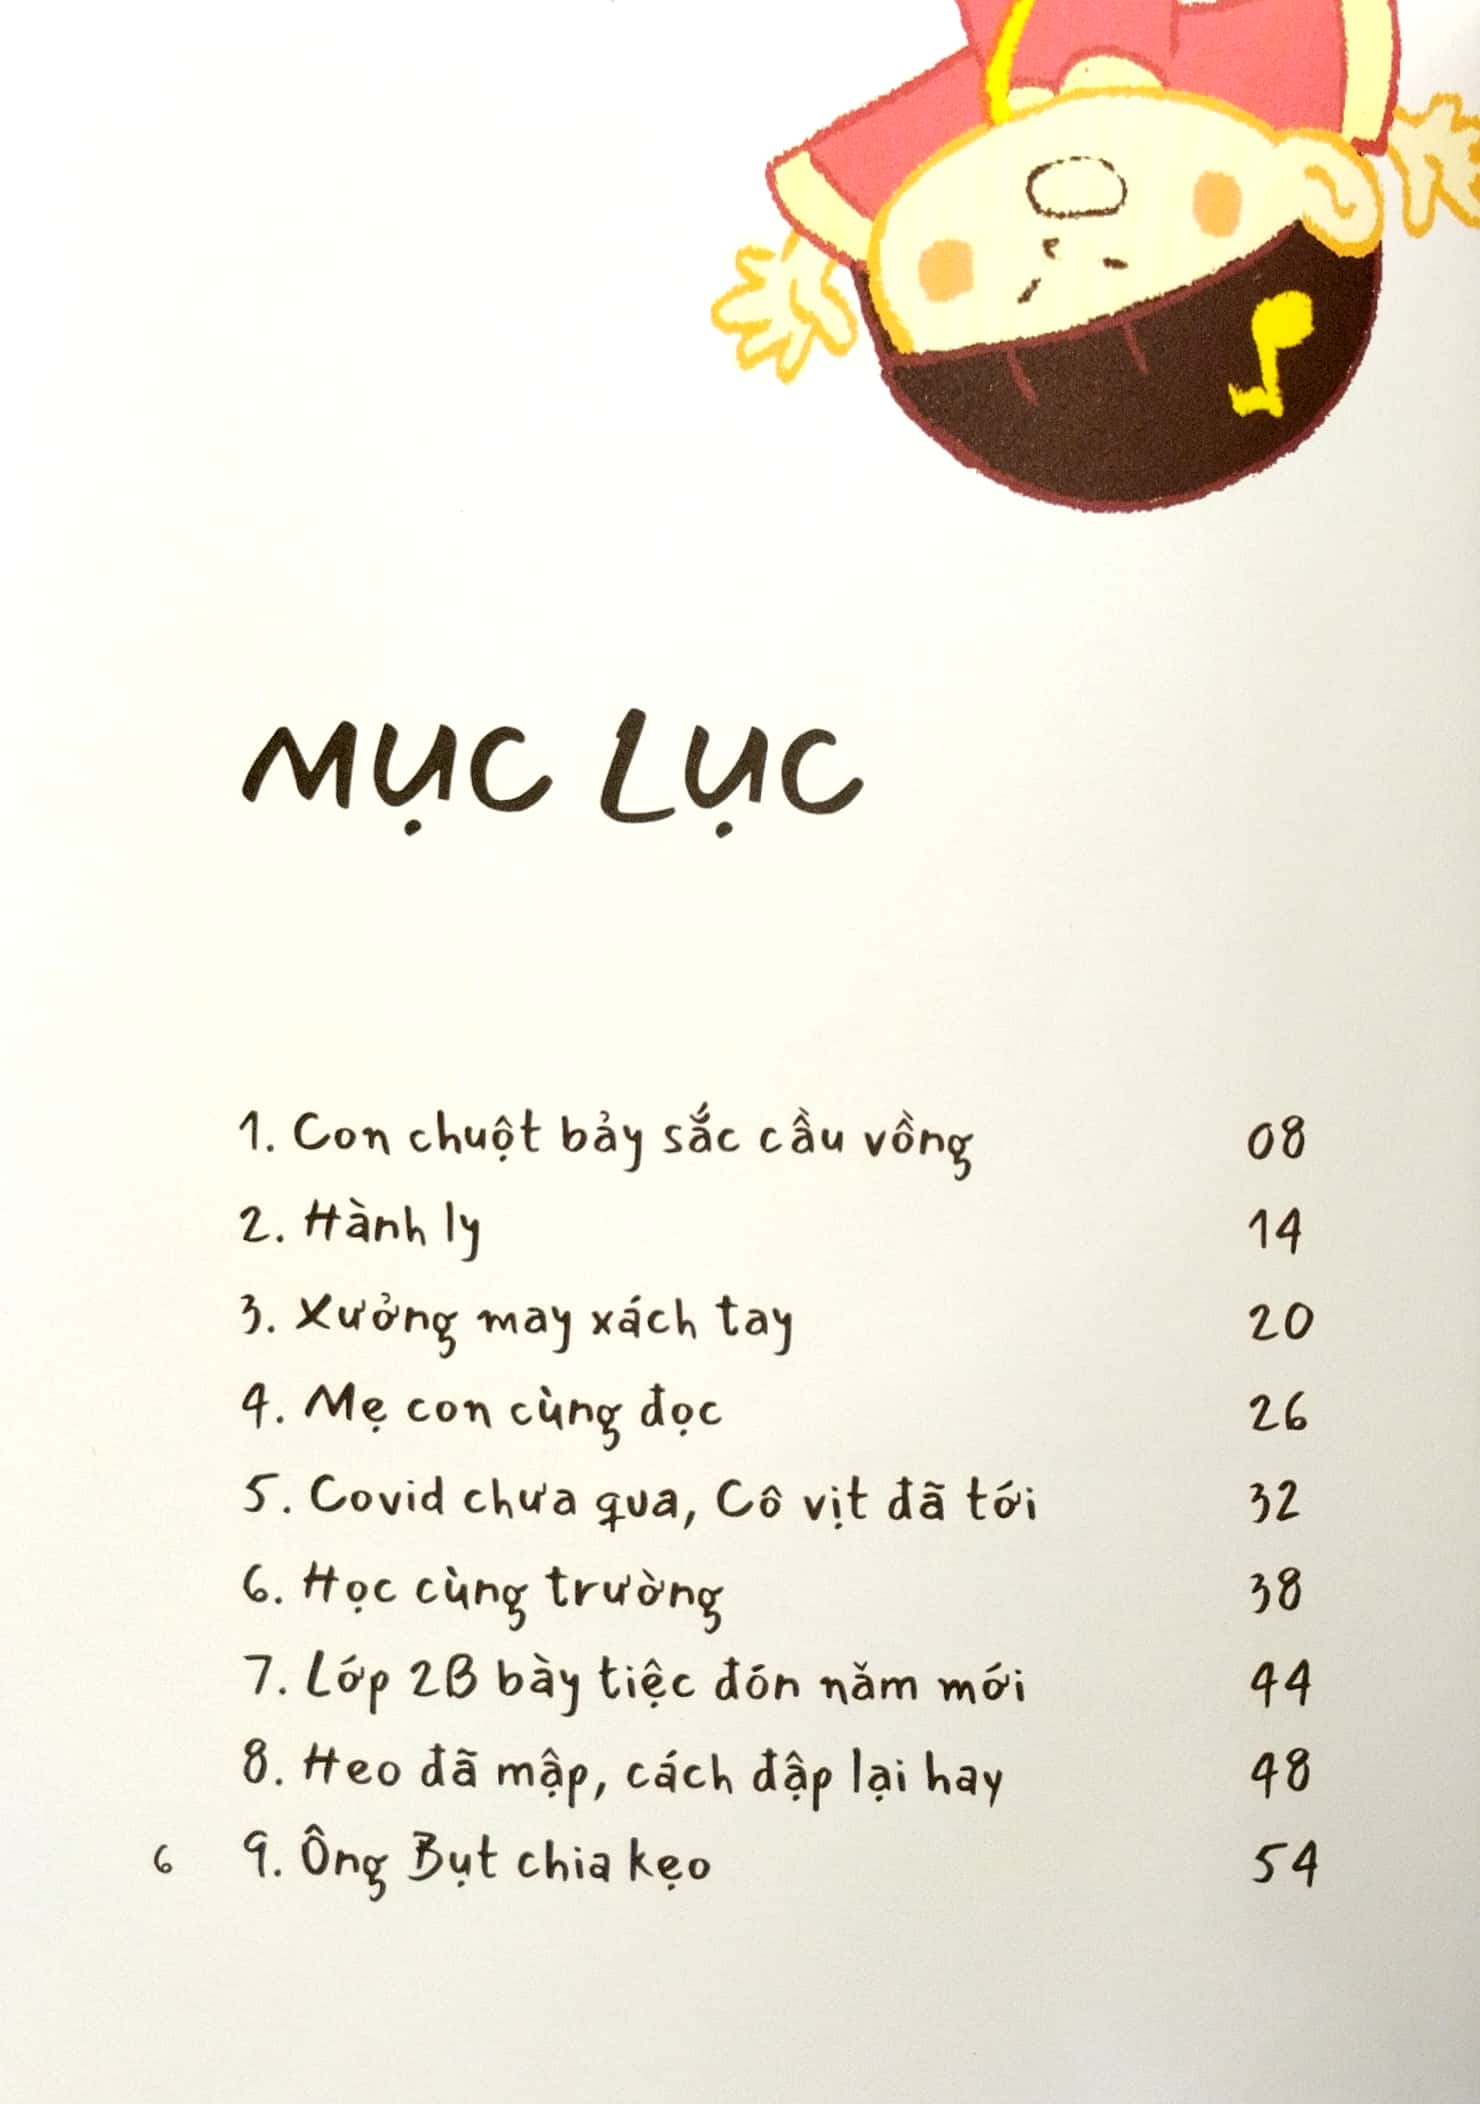 MỤC LỤC
1. Con chuột bảy sắc cầu vồng 08
2. Hành ly 14
3. Xưởng may xách tay 20
4. Mẹ con cùng đọc 26
5. Covid chưa qua, Cô vịt đã tới 32
6. Học cùng trường 38
7. Lớp 2B bày tiệc đón năm mới 44
8. Heo đã mập, cách đập lại hay 48
9. Ông Bụt chia kẹo 54
6